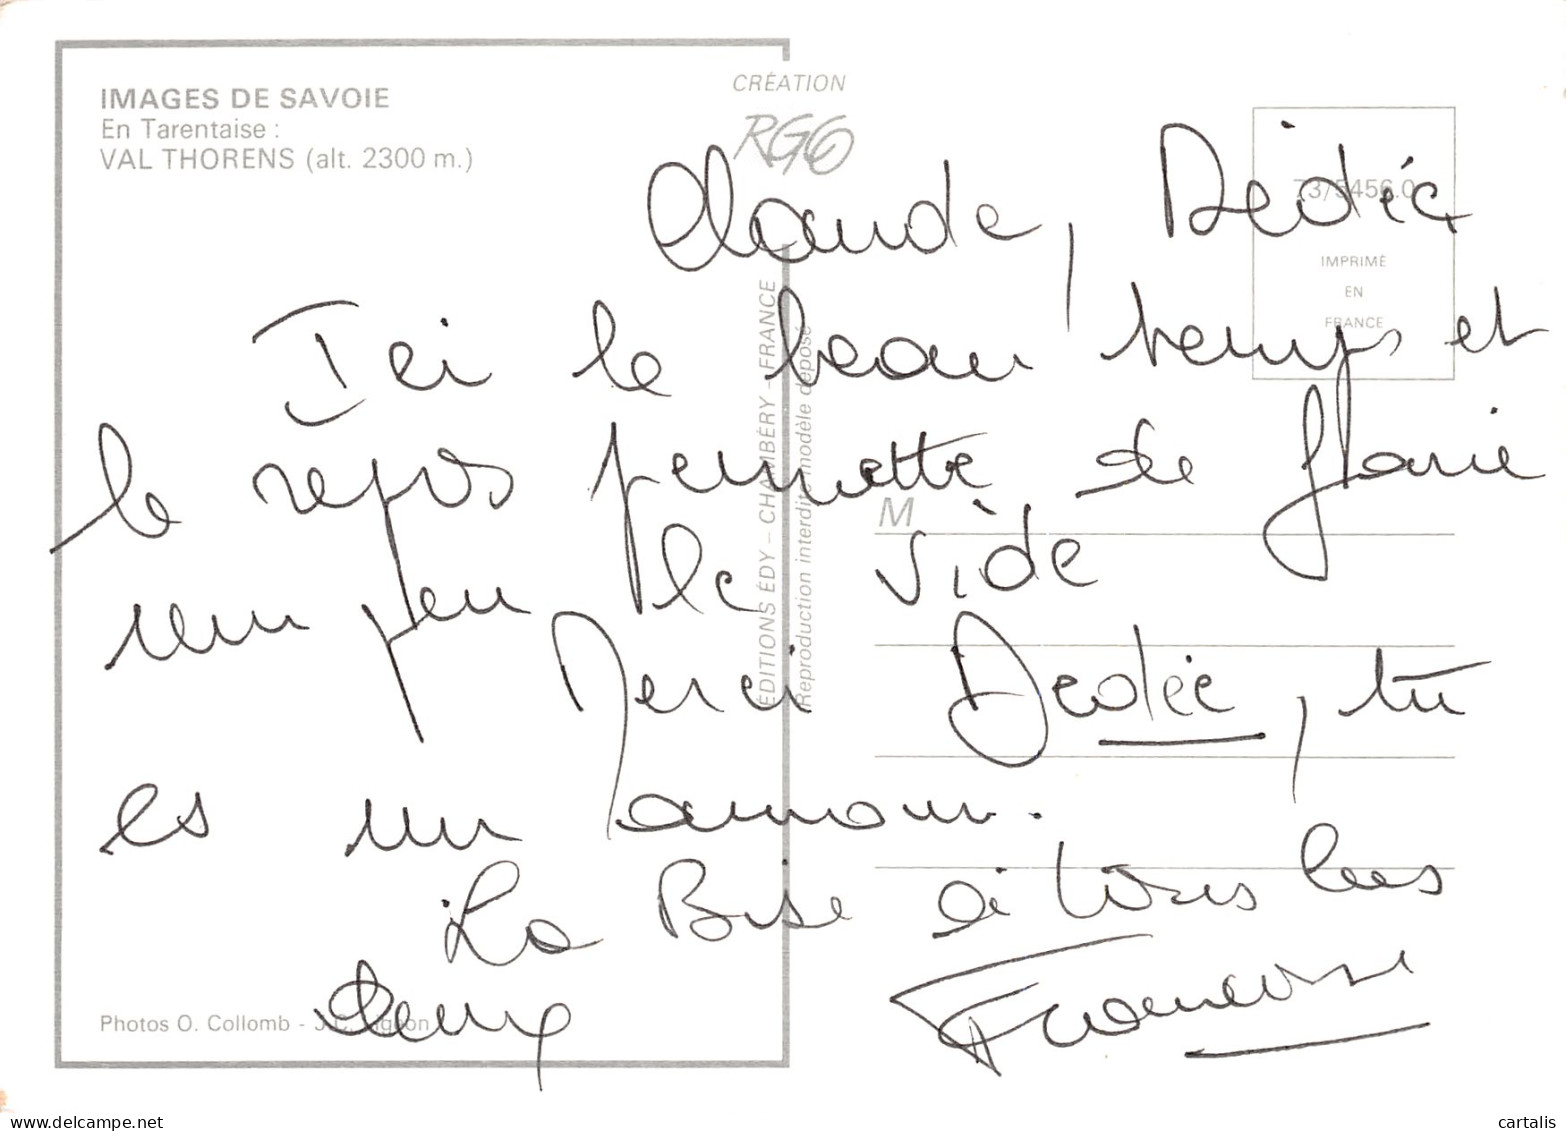 IMAGES DE SAVOIE
En Tarentaise :
VAL THORENS (alt. 2300 m.)
CRÉATION
RGG
73/5456.0
IMPRIMÉ
EN
FRANCE
ÉDITIONS ÉDY – CHAMBÉRY – FRANCE
Reproduction interdite modèle déposé
M
Claude, Dédée
Ici le beau temps et
le repos permette de faire
un peu le vide
Merci Dedée, tu
es un amour.
La Bise à tous les
deux
Francoise
Photos O. Collomb -
cartalis